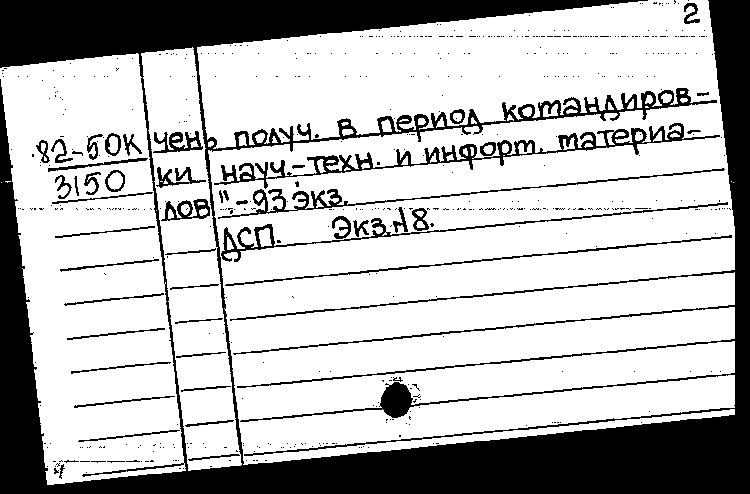 2
82-50К чень получ. в период командиров-
3150 ки науч.-техн. и информ. материа-
лов".-93 экз.
ДСП. Экз.№8.